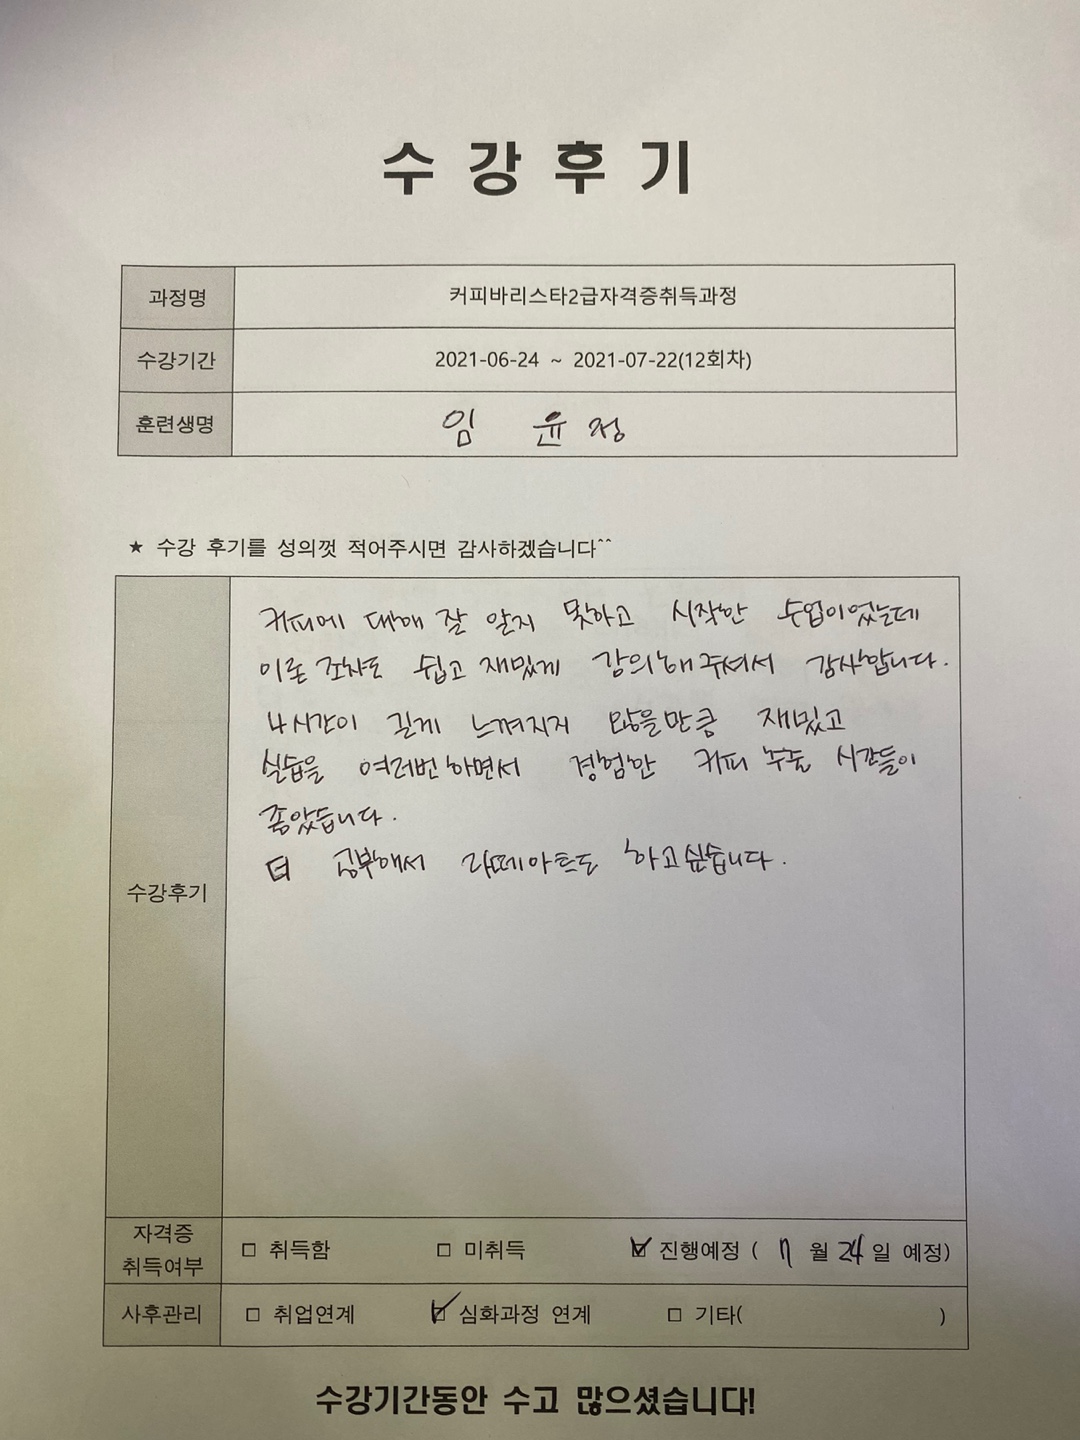 수 강 후 기
과정명 커피바리스타2급자격증취득과정
수강기간 2021-06-24 ~ 2021-07-22(12회차)
훈련생명 임 윤 정
★ 수강 후기를 성의껏 적어주시면 감사하겠습니다^^
커피에 대해 잘 알지 못하고 시작한 수업이었는데
이론 조차도 쉽고 재밌게 강의해주셔서 감사합니다.
4시간이 길게 느껴지지 않을만큼 재밌고
실습을 여러번하면서 경험한 커피 추출 시간들이
좋았습니다.
더 공부해서 라떼아트도 하고싶습니다.
수강후기
자격증 취득여부 □ 취득함 □ 미취득 ☑ 진행예정 ( 7 월 24 일 예정)
사후관리 □ 취업연계 ☑ 심화과정 연계 □ 기타( )
수강기간동안 수고 많으셨습니다!